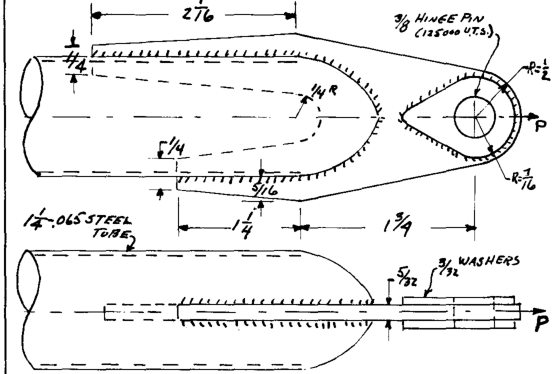 2 1/16
3/8 HINGE PIN
(125000 U.T.S.)
1/4
1/4 R
R=1/2
P
1/4
5/16
R=7/16
1 1/4
1 3/4
1 1/4-.065 STEEL
TUBE
5/32
3/32 WASHERS
P